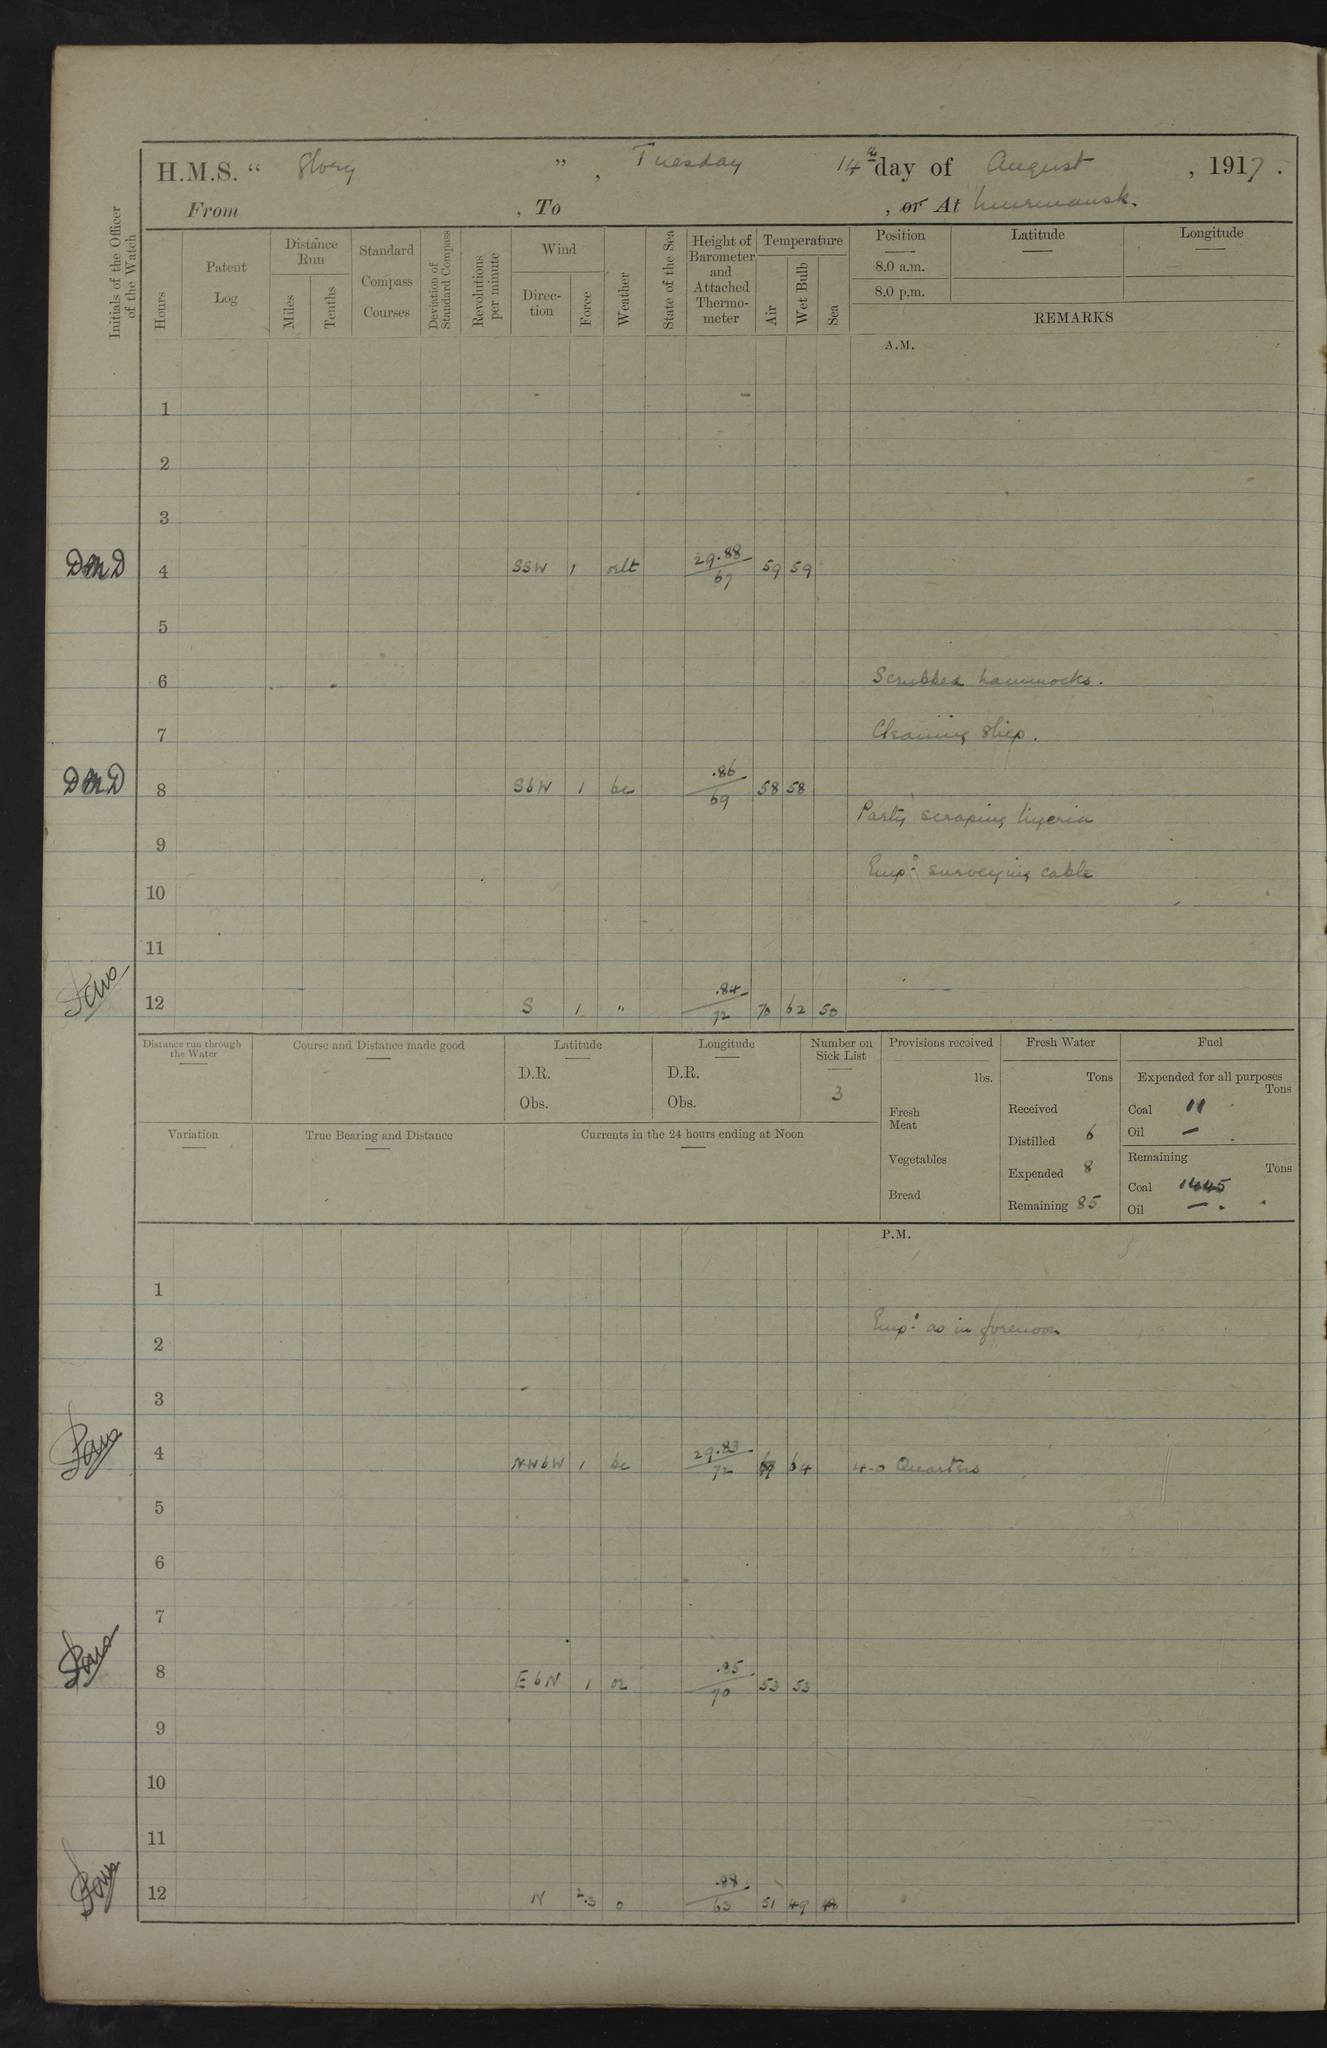 H.M.S. " Glory " , Tuesday 14th day of August , 1917.
From , To , or At Murmansk.
Initials of the Officer of the Watch
Hours
Patent Log
Distance Run
Miles
Tenths
Standard Compass Courses
Deviation of Standard Compass
Revolutions per minute
Wind
Direc-tion
Force
Weather
State of the Sea
Height of Barometer and Attached Thermo-meter
Temperature
Air
Wet Bulb
Sea
Position
8.0 a.m.
8.0 p.m.
Latitude
Longitude
REMARKS
A.M.
1
2
3
DMD 4 SSW 1 orlt 29.88/67 59 59
5
6 Scrubbed hammocks.
7 Cleaning Ship.
DMD 8 SbW 1 bc .86/69 58 58
Party scraping
9
Emp: surveying cable
10
11
12 S 1 " .84/72 70 62 50
Distance run through the Water
Course and Distance made good
Latitude
D.R.
Obs.
Longitude
D.R.
Obs.
Number on Sick List
3
Provisions received
lbs.
Fresh Meat
Vegetables
Bread
Fresh Water
Tons
Received
Distilled 6
Expended 8
Remaining 85
Fuel
Expended for all purposes
Tons
Coal 11
Oil —
Remaining
Tons
Coal 1445
Oil —
Variation
True Bearing and Distance
Currents in the 24 hours ending at Noon
P.M.
1
Emp: as in forenoon
2
3
4 NWbW 1 bc 29.83/72 69 64 4-0 Quarters
5
6
7
8 EbN 1 or .85/70 53 53
9
10
11
12 N 2.3 o .88/63 51 49 48